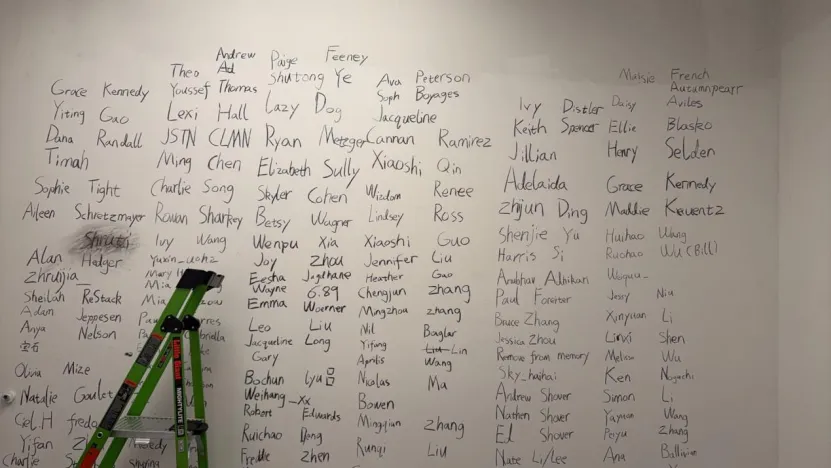 Andrew
Ad
Paige
Feeney
Theo
Youssef Thomas
Shutong Ye
Grace Kennedy
Yiting Gao
Lexi Hall
Lazy Dog
Dana Randall
JSTN CLMN
Ryan Metzger
Timah
Ming Chen
Elizabeth Sully
Sophie Tight
Charlie Song
Skyler Cohen
Aileen Schretzmayer
Rowan Sharkey
Betsy Wagner
Shruti
Ivy Wang
Wenpu Xia
Alan Hedger
Yuxin_uohz
Joy Zhou
Zhruijia_
Eesha Jagdhane
Sheilah ReStack
Mia
Wayne 6.89
Emma Woerner
Adam Jeppesen
Anya Nelson
Leo Liu
宝石
Jacqueline Long
Gary
Olivia Mize
Bochun Lyu
Natalie Goulet
Weihang_Xx
Robert Edwards
Ciel.H fredo
Ruichao Dong
Yifan
Freddie Zhen
Charlie
Ava Peterson
Soph Boyages
Jacqueline
Cannan Ramirez
Xiaoshi Qin
Wizdom Renee
Lindsey Ross
Xiaoshi Guo
Jennifer Liu
Heather Gao
Chengjun Zhang
Mingzhou Zhang
Nil Baglar
Yifang Lin
Aprilis Wang
Nicolas Ma
Bowen
Mingqian Zhang
Runqi Liu
Maisie French
Autumnpearr
Ivy Distler
Daisy Aviles
Keith Spencer
Ellie Blasko
Jillian
Henry Selden
Adelaida
Grace Kennedy
Zhijun Ding
Maddie Kauentz
Shenjie Yu
Huihao Wang
Harris Si
Ruohao Wu (Bill)
Anubhav Adhikari
Wuguu_
Paul Forester
Jessy Niu
Bruce Zhang
Xinyuan Li
Jessica Zhou
Linxi Shen
Remove from memory
Melissa Wu
Sky_haihai
Ken Noguchi
Andrew Shaver
Simon Li
Nathen Shaver
Yayuan Wang
Ed Shaver
Peiyu Zhang
Nate Li/Lee
Ana Ballivian
Little Giant
MIGHTYLITE